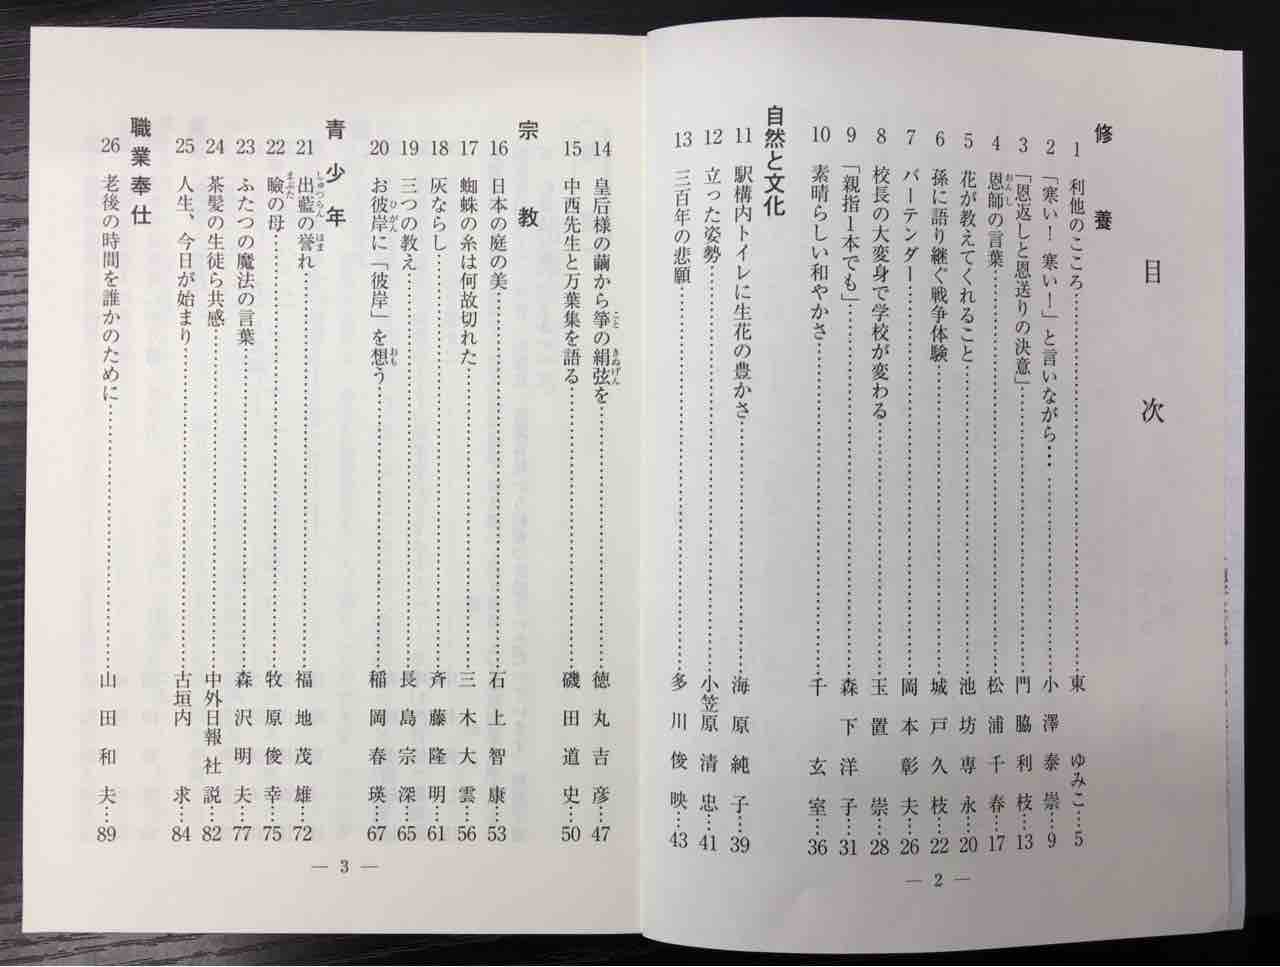 目次
修養
1 利他のこころ……東 ゆみこ…5
2 「寒い！寒い！」と言いながら…小澤泰崇…9
3 「恩返しと恩送りの決意」……門脇利枝…13
4 恩師の言葉……松浦千春…17
5 花が教えてくれること……池坊専永…20
6 孫に語り継ぐ戦争体験……城戸久枝…22
7 バーテンダー……岡本彰夫…26
8 校長の大変身で学校が変わる……玉置崇…28
9 「親指1本でも」……森下洋子…31
10 素晴らしい和やかさ……千玄室…36
自然と文化
11 駅構内トイレに生花の豊かさ……海原純子…39
12 立った姿勢……小笠原清忠…41
13 三百年の悲願……多川俊映…43
— 2 —
14 皇后様の繭から箏の絹弦を……徳丸吉彦…47
15 中西先生と万葉集を語る……磯田道史…50
宗教
16 日本の庭の美……石上智康…53
17 蜘蛛の糸は何故切れた……三木大雲…56
18 灰ならし……斉藤隆明…61
19 三つの教え……長島宗深…65
20 お彼岸に「彼岸」を想う……稲岡春瑛…67
青少年
21 出藍の誉れ……福地茂雄…72
22 瞼の母……牧原俊幸…75
23 ふたつの魔法の言葉……森沢明夫…77
24 茶髪の生徒ら共感……中外日報社説…82
25 人生、今日が始まり……古垣内求…84
職業奉仕
26 老後の時間を誰かのために……山田和夫…89
— 3 —